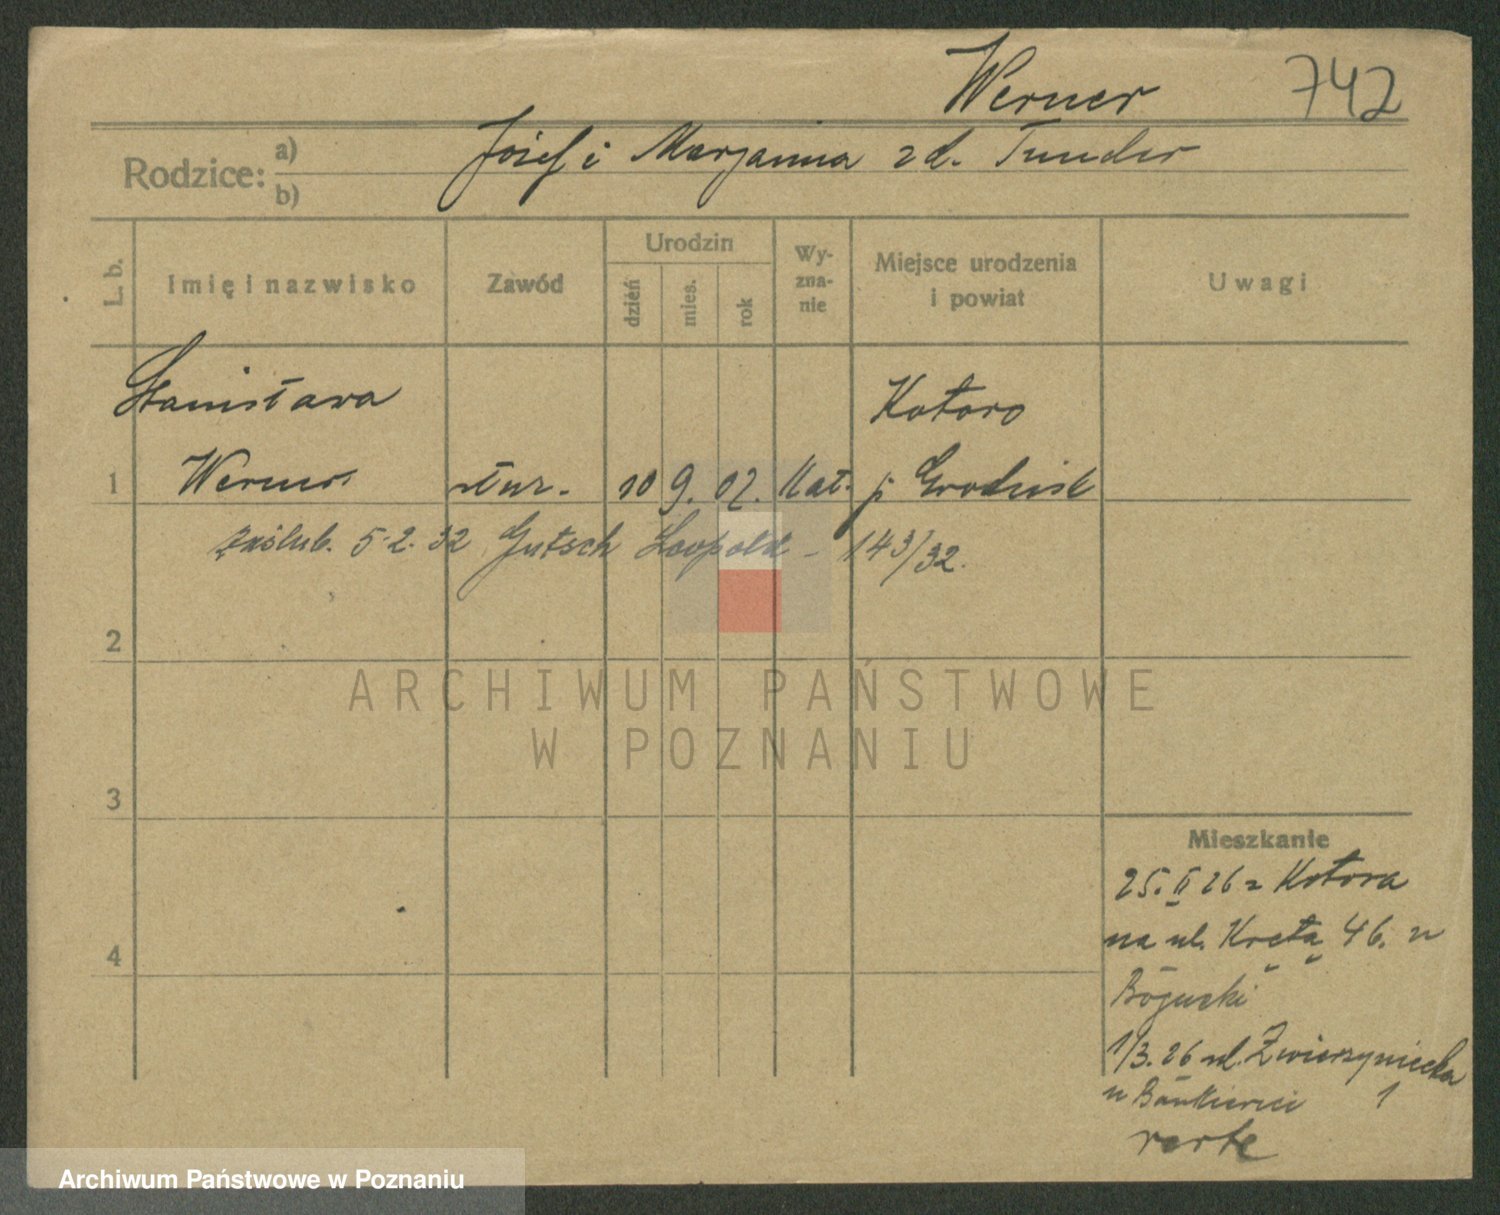 Werner 742
Rodzice: a) Józef i Marjanna zd. Tunder
b)
L. b. Imię i nazwisko Zawód Urodzin dzień mies. rok Wy-zna-nie Miejsce urodzenia i powiat Uwagi
Stanisława Kotowo
1 Werner służ. 10 9. 02. Kat. p. Grodzisk
zaślub. 5.2.32 Gutsch Leopold - 143/32.
2
ARCHIWUM PAŃSTWOWE
W POZNANIU
3
Mieszkanie
25.II 26 z Kotowa
na ul. Kręta 46. u
4
Bogucki
1/3.26 ul. Zwierzyniecka
u 1
verte
Archiwum Państwowe w Poznaniu